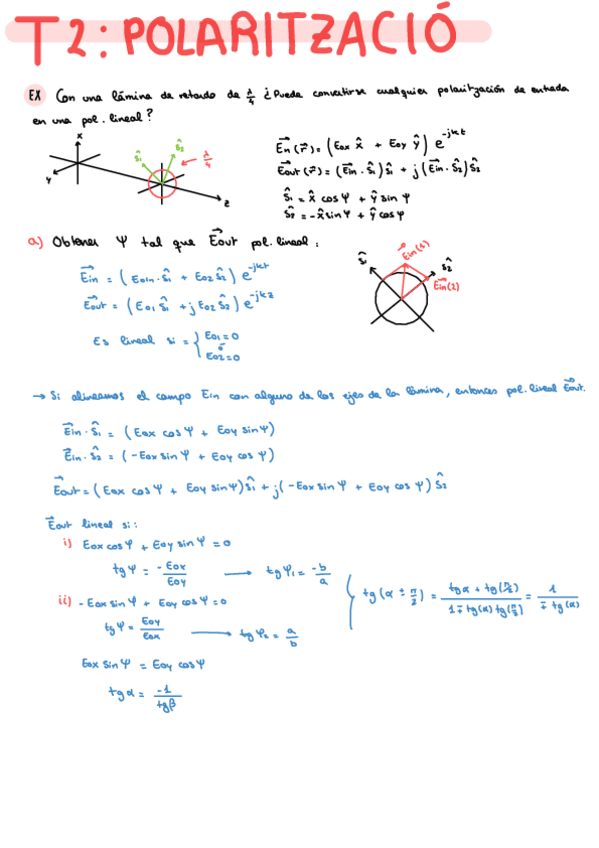 T2: POLARITZACIÓ
EX Con una lámina de retardo de λ/4 ¿Puede convertirse cualquier polarització de entrada
en una pol. lineal?
x
y
z
ŝ1
ŝ2
λ/4
Ein(r) = (Eox x̂ + Eoy ŷ) e^-jkz
Eout(r) = (Ein · ŝ1)ŝ1 + j(Ein · ŝ2)ŝ2
ŝ1 = x̂ cos Ψ + ŷ sin Ψ
ŝ2 = -x̂ sin Ψ + ŷ cos Ψ
a) Obtener Ψ tal que Eout pol. lineal:
Ein = (Eo1 · ŝ1 + Eo2 ŝ2) e^-jkz
Eout = (Eo1 ŝ1 + j Eo2 ŝ2) e^-jkz
Es lineal si = { Eo1 = 0
ó
Eo2 = 0
ŝ1
ŝ2
Ein(1)
Ein(2)
→ Si alineamos el campo Ein con alguno de los ejes de la lámina, entonces pol. lineal Eout.
Ein · ŝ1 = (Eox cos Ψ + Eoy sin Ψ)
Ein · ŝ2 = (-Eox sin Ψ + Eoy cos Ψ)
Eout = (Eox cos Ψ + Eoy sin Ψ)ŝ1 + j(-Eox sin Ψ + Eoy cos Ψ)ŝ2
Eout lineal si:
i) Eox cos Ψ + Eoy sin Ψ = 0
tg Ψ = -Eox/Eoy → tg Ψ1 = -b/a
ii) -Eox sin Ψ + Eoy cos Ψ = 0
tg Ψ = Eoy/Eox → tg Ψ2 = a/b
{ tg(α ± π/2) = (tg α + tg(π/2))/(1 ∓ tg(α) tg(π/2)) = 1/(∓ tg(α))
Eox sin Ψ = Eoy cos Ψ
tg α = -1/tg β